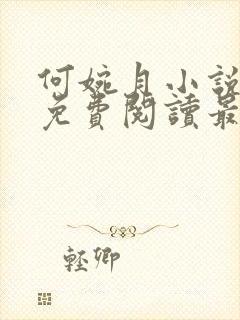 何婉月小說
免費閱讀最
輕卿